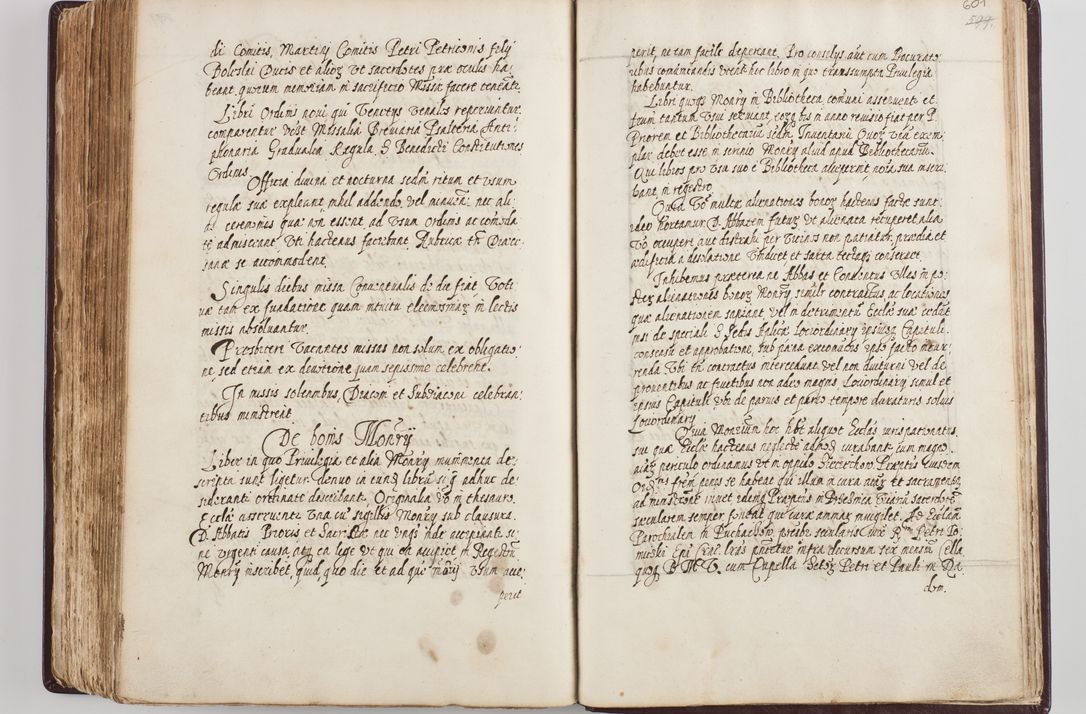 di Comitis, Martini Comitis Petri Petriconis filij
Boleslai Ducis et alioꝝ vt sacerdotes præ oculis ha-
beant, quorum memoriam in sacrificio Missæ facere teneãtꝛ.
Libri Ordinis noui qui Venetijs venales reperiuntur
comparentur vt st Missalia Breuiaria Psalteria Anti-
phonaria Gradualia Regula S. Benedicti Constitutiones
Ordinis.
Officia diuina et nocturna sedm̃ ritum et vsum
regulæ suæ expleant nihil addendo, vel minuẽ. nec ali-
as ceremonias quæ non essent ad vsum Ordinis accomoda-
tæ admisceant, vti hactenus faciebant Rubricæ tñ Diæce-
sanæ se accommodent.
Singulis diebus missa Conuentualis de die fiat Voti-
uæ tañ ex fundatione quam intuitu eleemosinaꝝ in lectis
missis absoluantur.
Presbiteri vacantes missas non solum ex obligatio-
ne, sed etiam ex deuotione quam sepissime celebrent.
In missis solennibus, Diaconi et Subdiaconi celebran-
tibus ministrent
De bonis Monrÿ
Liber in quo Priuilegia et alia Monrÿ munimenta de-
scripta sunt ligetur denuo in eund librũ si q adhuc de-
siderant ordinate describant. Originalia vo in thesauro
Ecclæ asseruentꝛ vna cũ sigillis Monrÿ sub clausura
D. Abbatis Prioris et Sacristæ nec vnqz inde accipiant si-
ne vrgenti causa, atqz ea lege vt qui ea accipiet in Regestrũ
Monrÿ inscribet, quid, quo die et ad quẽ vsum acce-
perit
601
599.
perit, ne tam facile depereant. Pro consilys aũt cum Procurato-
ribus comunicandis vtent hoc libro in quo transsumpta Priuilegia
habebuntur.
Libri quoqz Monrÿ in Bibliotheca comuni asseruent et
frum tantum vsui seruiant, eoꝝ bis in anno reuisio fiat per P.
Priorem et Bibliothecariũ sedm̃ Inuentariũ Cuoꝝ vnũ exem-
plar debet esse in scrinio Monrÿ aliud apud Bibliothecariũ.
Qui libros pro vsu suo è Bibliotheca acceperint noĩa sua inscri-
bant in regestro
Quia vo multæ alienationes bonoꝝ hactenus factæ sunt
ideo hortamur D. Abbatem futuꝝ vt alienata recuperet, alia
vo occupari aut distrahi per vicinos non patiatur, prædia et
ædificia à desolatione vindicet et sarta tectaqz conseruet.
Inhibemus præterea ne Abbas et Conuentus vllas in po-
steꝝ alienationes bonoꝝ Monrÿ, similr contractus, ac locationes
quæ alienationem sapiant, vel in detrimentũ Ecclæ suæ cedãt
nisi de speciali S. Sedis Aplicæ Locordinarÿ ipsiusqz Capituli
consensu et approbatione, sub pæna excomuõis ipso facto incur-
renda Vbi tñ contractus intercedunt, vel non diuturni vel de
prouentibus ac fructibus non adeo magnis, Locordinarÿ simul et
ipsius Capituli vbi de paruis et paruo tempore duraturis solius
Locordinarÿ
Quia Moñium hoc hẽt aliquot Ecclas iurispatronatus
sui quæ Ecclæ hactenus neglectè admod curabant cum magno
aiaꝝ periculo ordinamus vt in oppido Præptus eiusdem
Ordinis frẽm penes se habeat qui illum in cura aiaꝝ et sacramentis
administrandis iuuet idemqz Præptus in vicariũ sacerdotẽ
sæcularem semper foueat qui curæ animaꝝ inuigilet. Ad Eccliam
Parochialem in Puchaczow præsbr secularis iuxt Petri To-
micki Epi Crac. lras pnẽtur infra decursum sex mensiũ. Cella
quoqz B. M. V. cum Capella Sctoꝝ Petri et Pauli in Da-
dom.